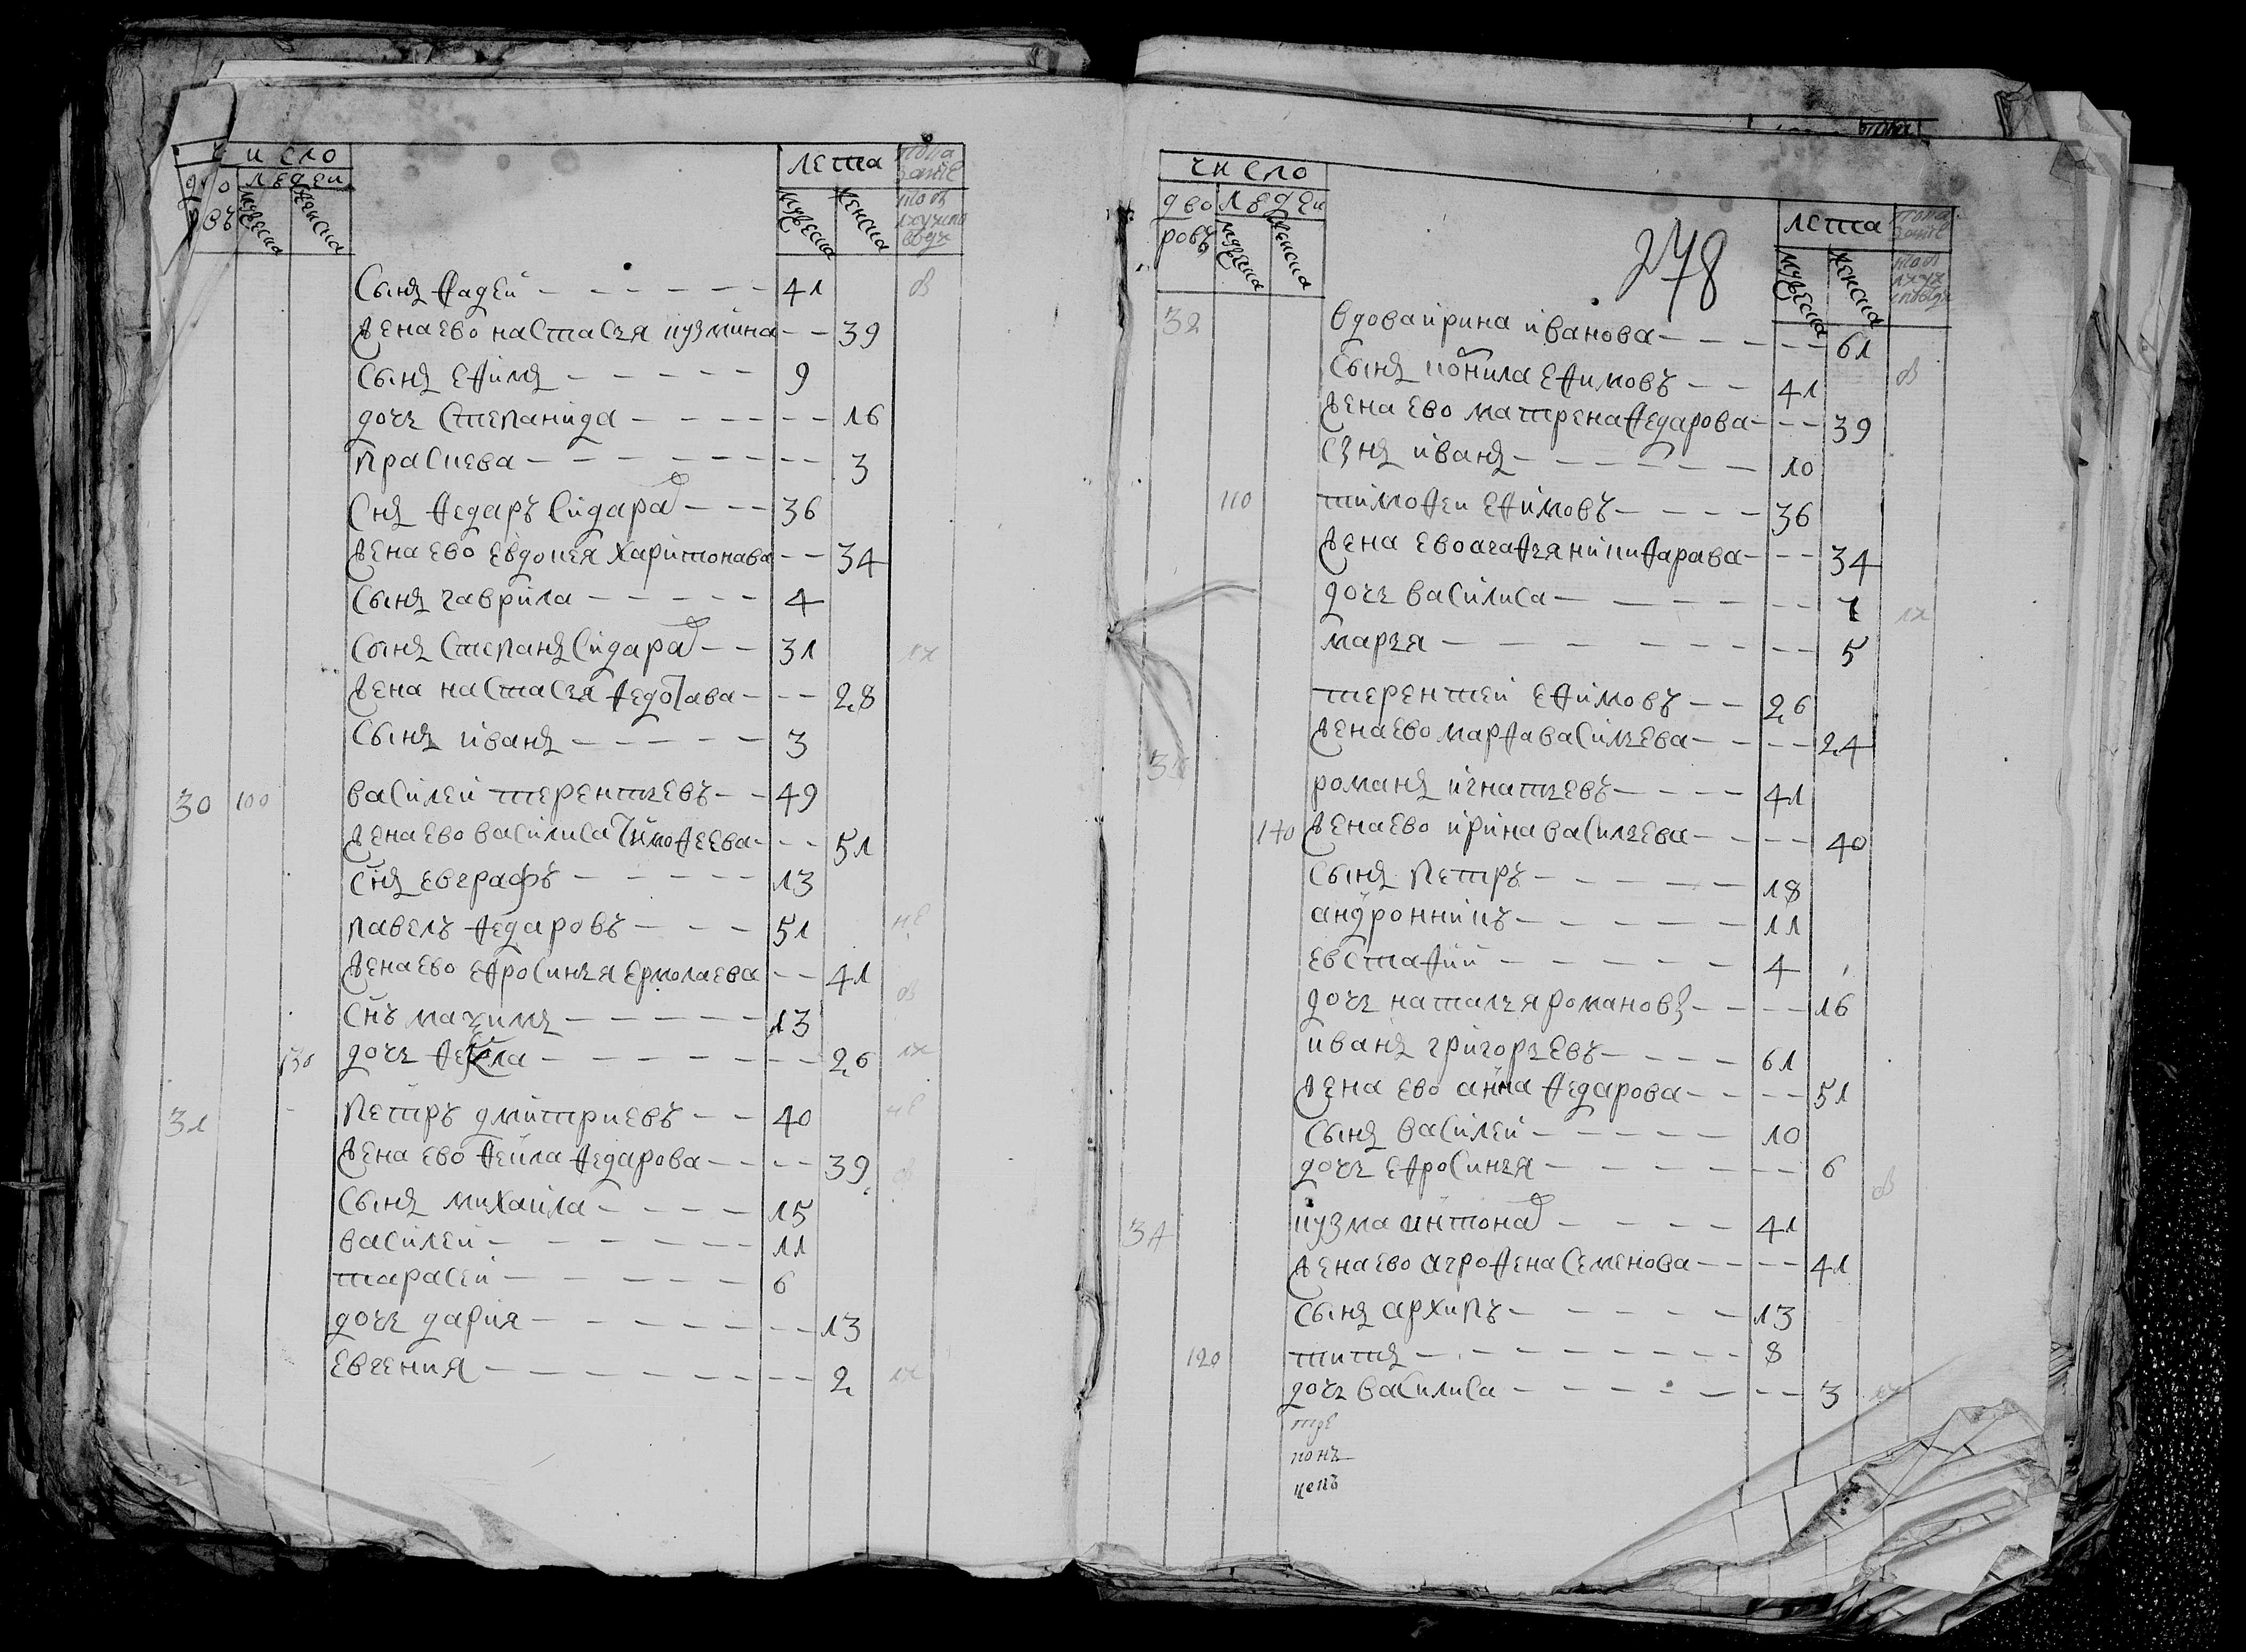 число
дворовъ людеи лета пока занiе
мужеска женска мужеска женска
Сынъ Фадей 41 ов
жена ево настасъя кузмина 39
Сынъ Ефимъ 9
дочъ Степанида 16
прасковя 3
Снъ Федаръ Сидаравъ 36
жена ево Евдокея Харитонава 34
Сынъ гаврила 4
Сынъ Степанъ Сидаравъ 31
жена настасъя Федотава 28
Сынъ иванъ 3
30 100 василеи терентьевъ 49
жена ево василиса тимофеева 51
Снъ евграфъ 13
павелъ Федаровъ 51 не
жена ево Ефросинъя Ермолаева 41 ов
Снъ мачимъ 13
130 дочъ Фекла 26 их
31 петръ дмитриевъ 40 не
жена ево Фекла Федарова 39 ов
Сынъ михаила 15
василеи 11
тарасеи 6
дочъ дария 13
Евгения 2 их
число
дворовъ людеи лета пока занiе
мужеска женска мужеска женска
278
32 вдова ирина иванова 61
Сынъ корнила Ефимовъ 41 ов
жена ево матрена Федарова 39
Сынъ иванъ 10
110 тимофеи Ефимовъ 36
жена ево агафъя никифарава 34
дочъ василиса 7 их
маръя 5
терентеи Ефимовъ 26
жена ево марфа василъева 24
33 романъ игнатьевъ 41
140 жена ево ирина василъева 40
Сынъ петръ 18
андронникъ 11
Евстафии 4
дочъ наталъя романовъ 16
иванъ григоръевъ 61
жена ево анна Федарова 51
Сынъ василеи 10
дочъ Ефросинъя 6
34 кузма антонавъ 41 ов
жена ево агрофена Семенова 41
Сынъ архипъ 13
120 титъ 8
дочъ василиса 3 их